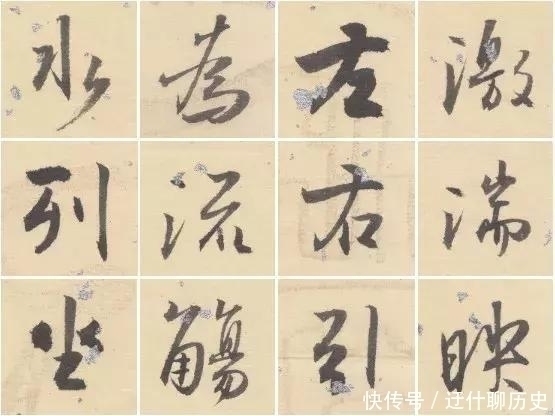 激湍映
左右引
為流觴
水列坐
快传号/迁什聊历史